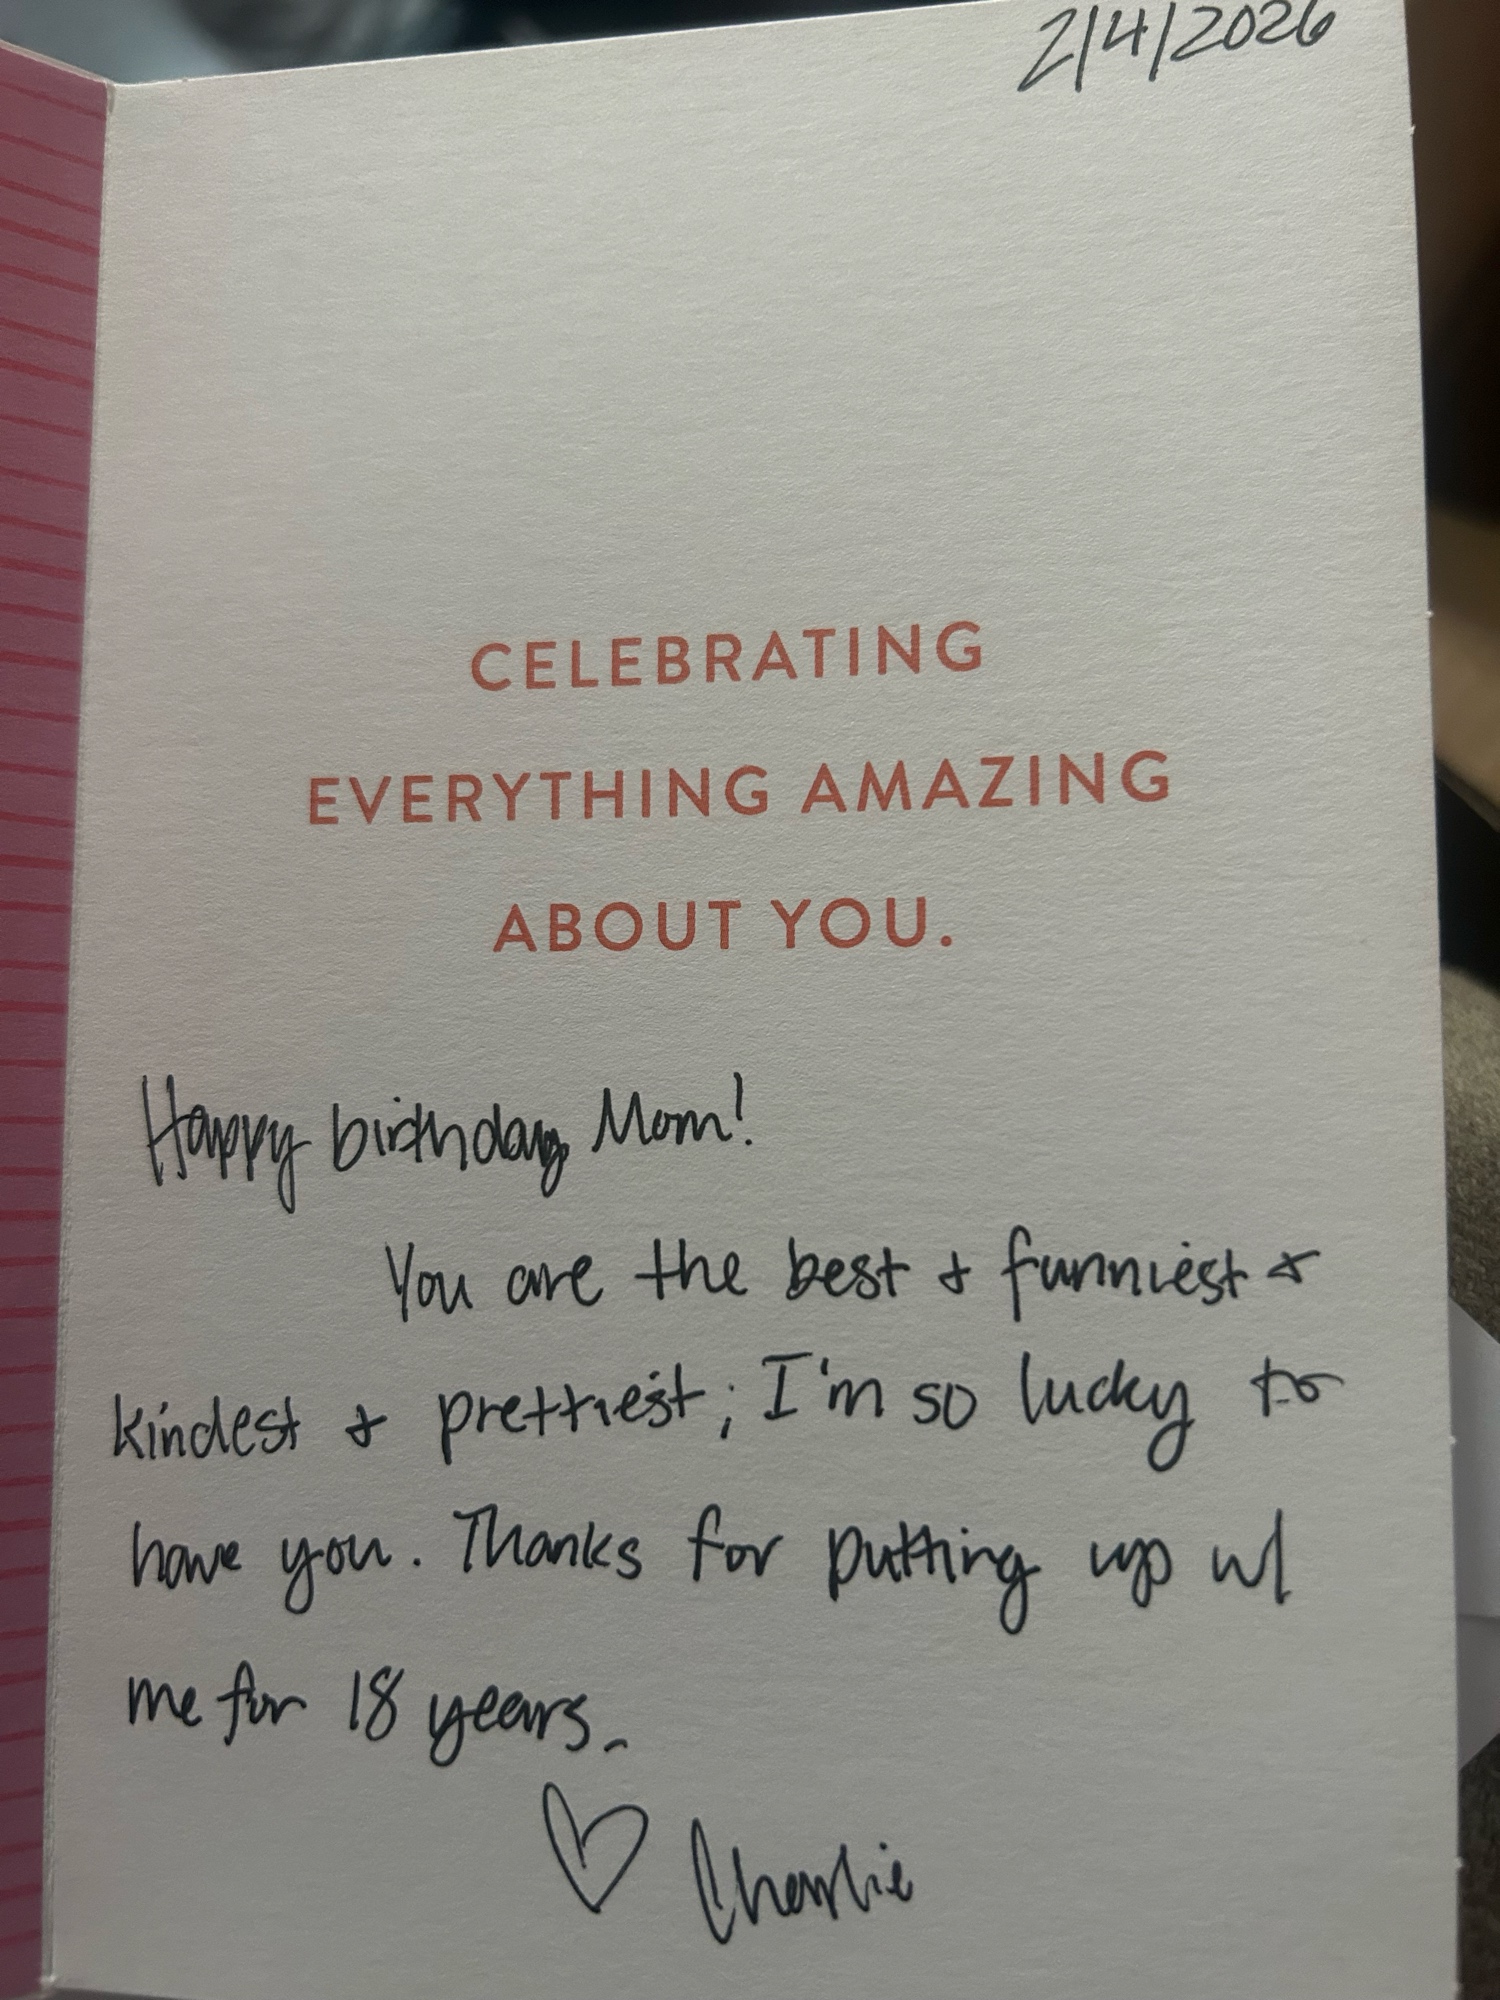 2/4/2026
CELEBRATING
EVERYTHING AMAZING
ABOUT YOU.
Happy birthday Mom!
You are the best & funniest &
kindest & prettiest; I'm so lucky to
have you. Thanks for putting up w/
me for 18 years.
♡ Charlie